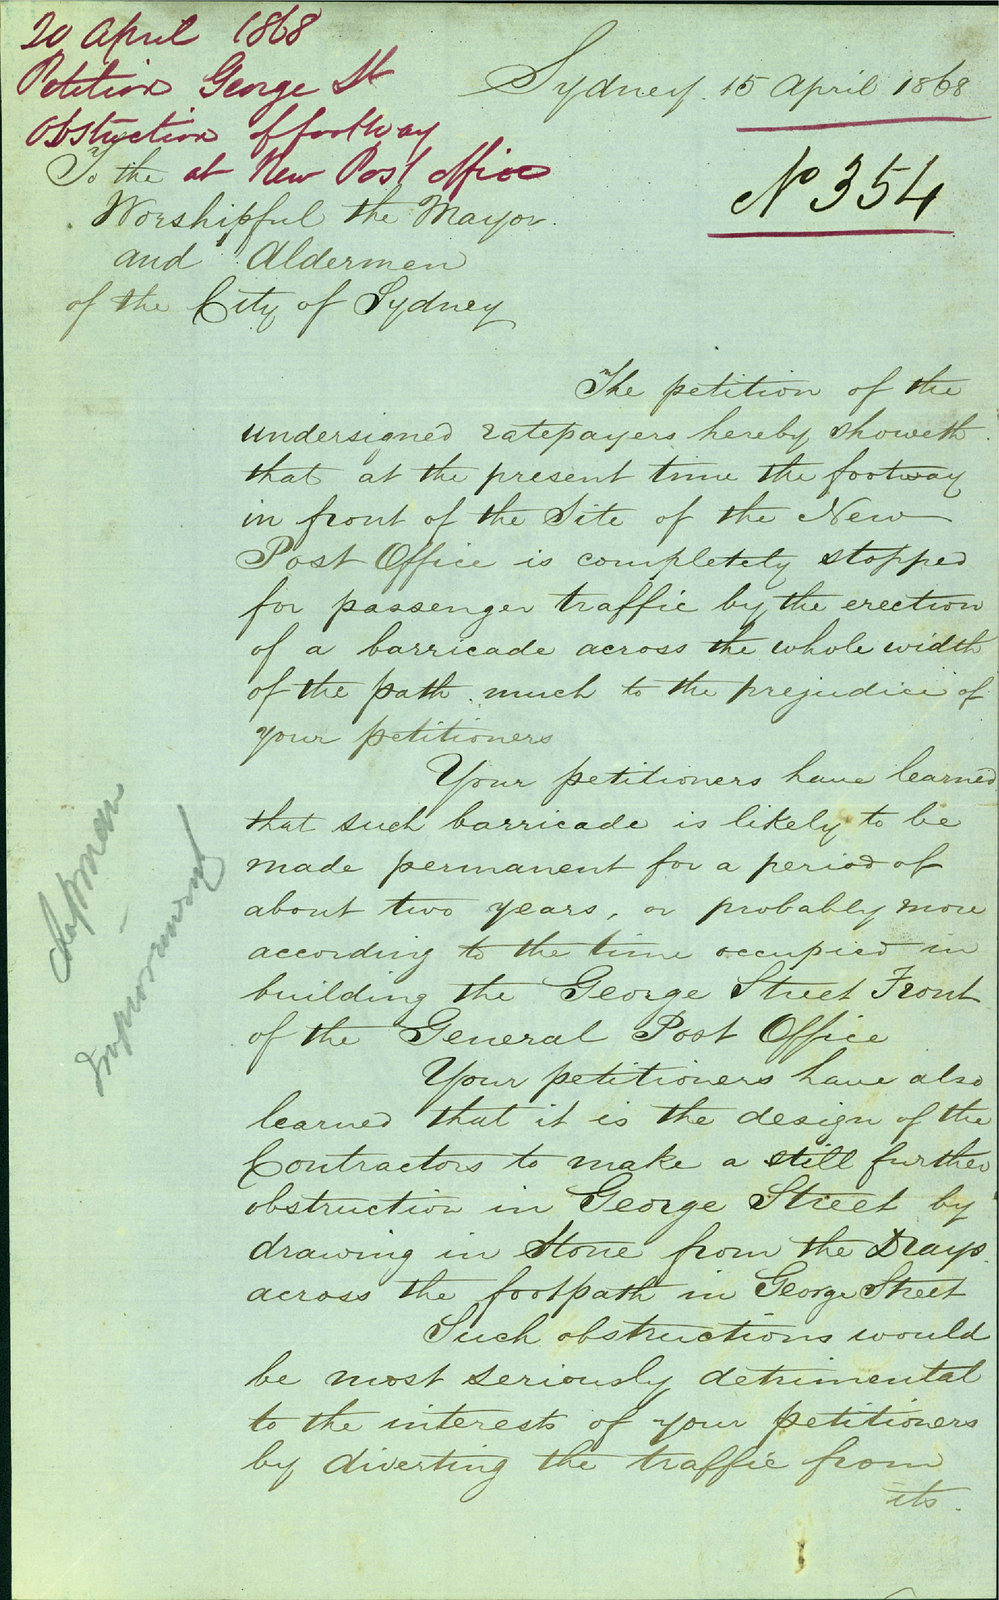 20 April 1868
Petition George St
Obstruction of footway
at New Post Office
Sydney 15 April 1868
No 354
To the
Worshipful the Mayor
and Aldermen
of the City of Sydney
The petition of the
undersigned ratepayers hereby showeth
that at the present time the footway
in front of the Site of the New
Post Office is completely stopped
for passenger traffic by the erection
of a barricade across the whole width
of the path much to the prejudice of
your petitioners
Your petitioners have learned
that such barricade is likely to be
made permanent for a period of
about two years, or probably more
according to the time occupied in
building the George Street Front
of the General Post Office
Your petitioners have also
learned that it is the design of the
Contractors to make a still further
obstruction in George Street by
drawing in Stone from the Drays
across the footpath in George Street
Such obstructions would
be most seriously detrimental
to the interests of your petitioners
by diverting the traffic from
its